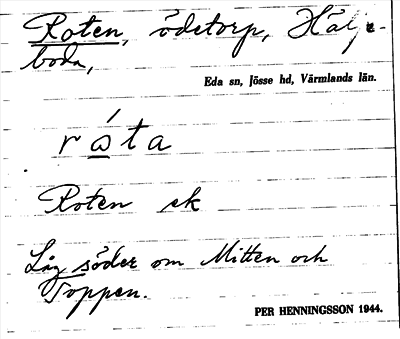 Roten, ödetorp, Hälje-
boda,
Eda sn, Jösse hd, Värmlands län.
rota
Roten ek
Låg söder om Mitten och
Toppen.
PER HENNINGSSON 1944.